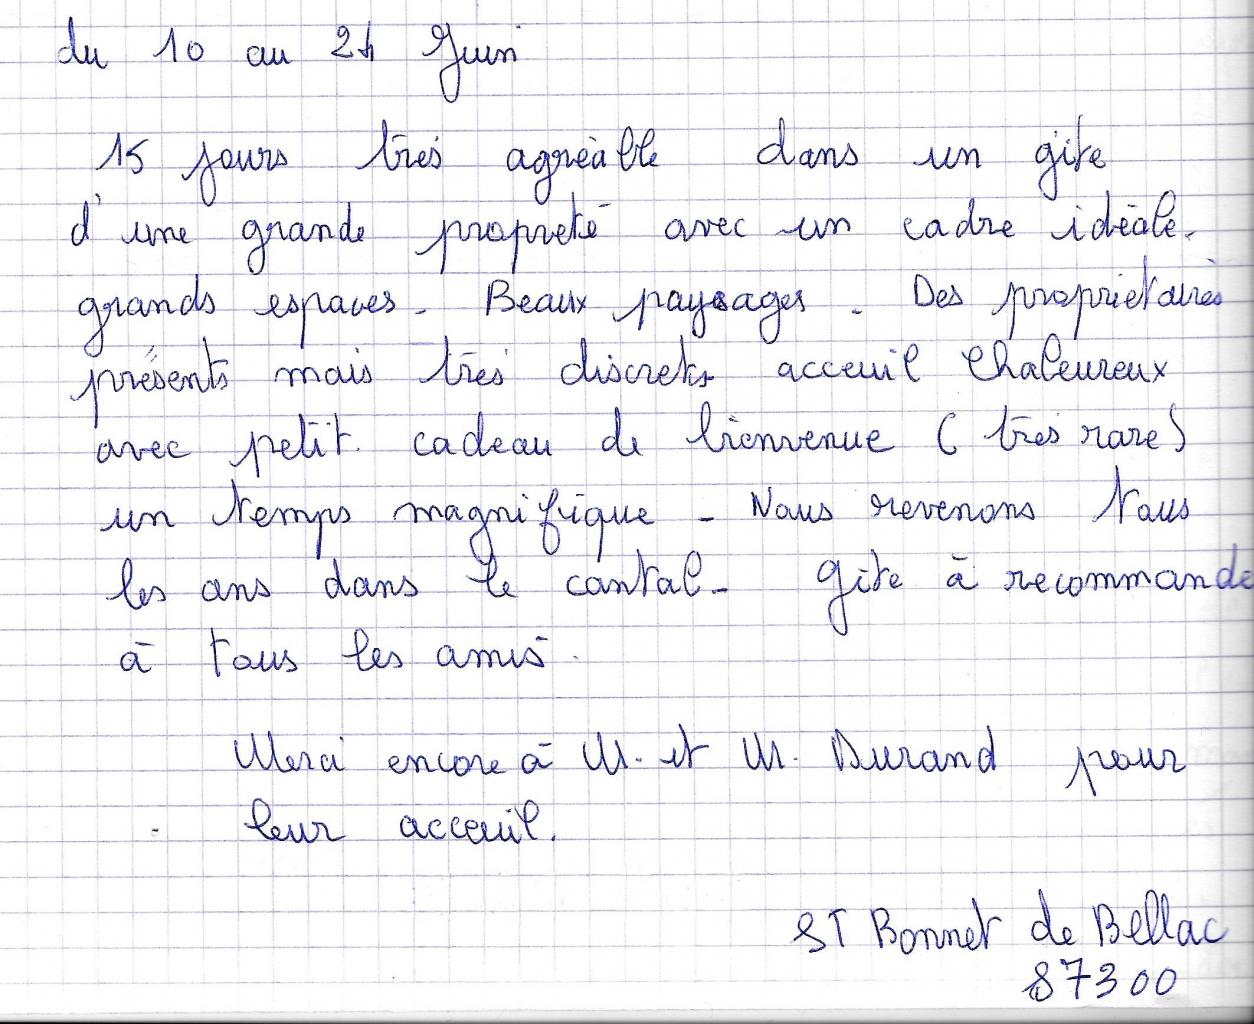 du 10 au 24 Juin
15 jours très agréable dans un gite
d'une grande propreté avec un cadre idéale.
grands espaces. Beaux paysages. Des propriétaires
présents mais très discrets acceuil Chaleureux
avec petit cadeau de bienvenue (très rare)
un temps magnifique - Nous revenons tous
les ans dans le cantal - Gite à recommande
à tous les amis.
Merci encore à M. et M. Durand pour
leur acceuil.
ST Bonnet de Bellac
87300